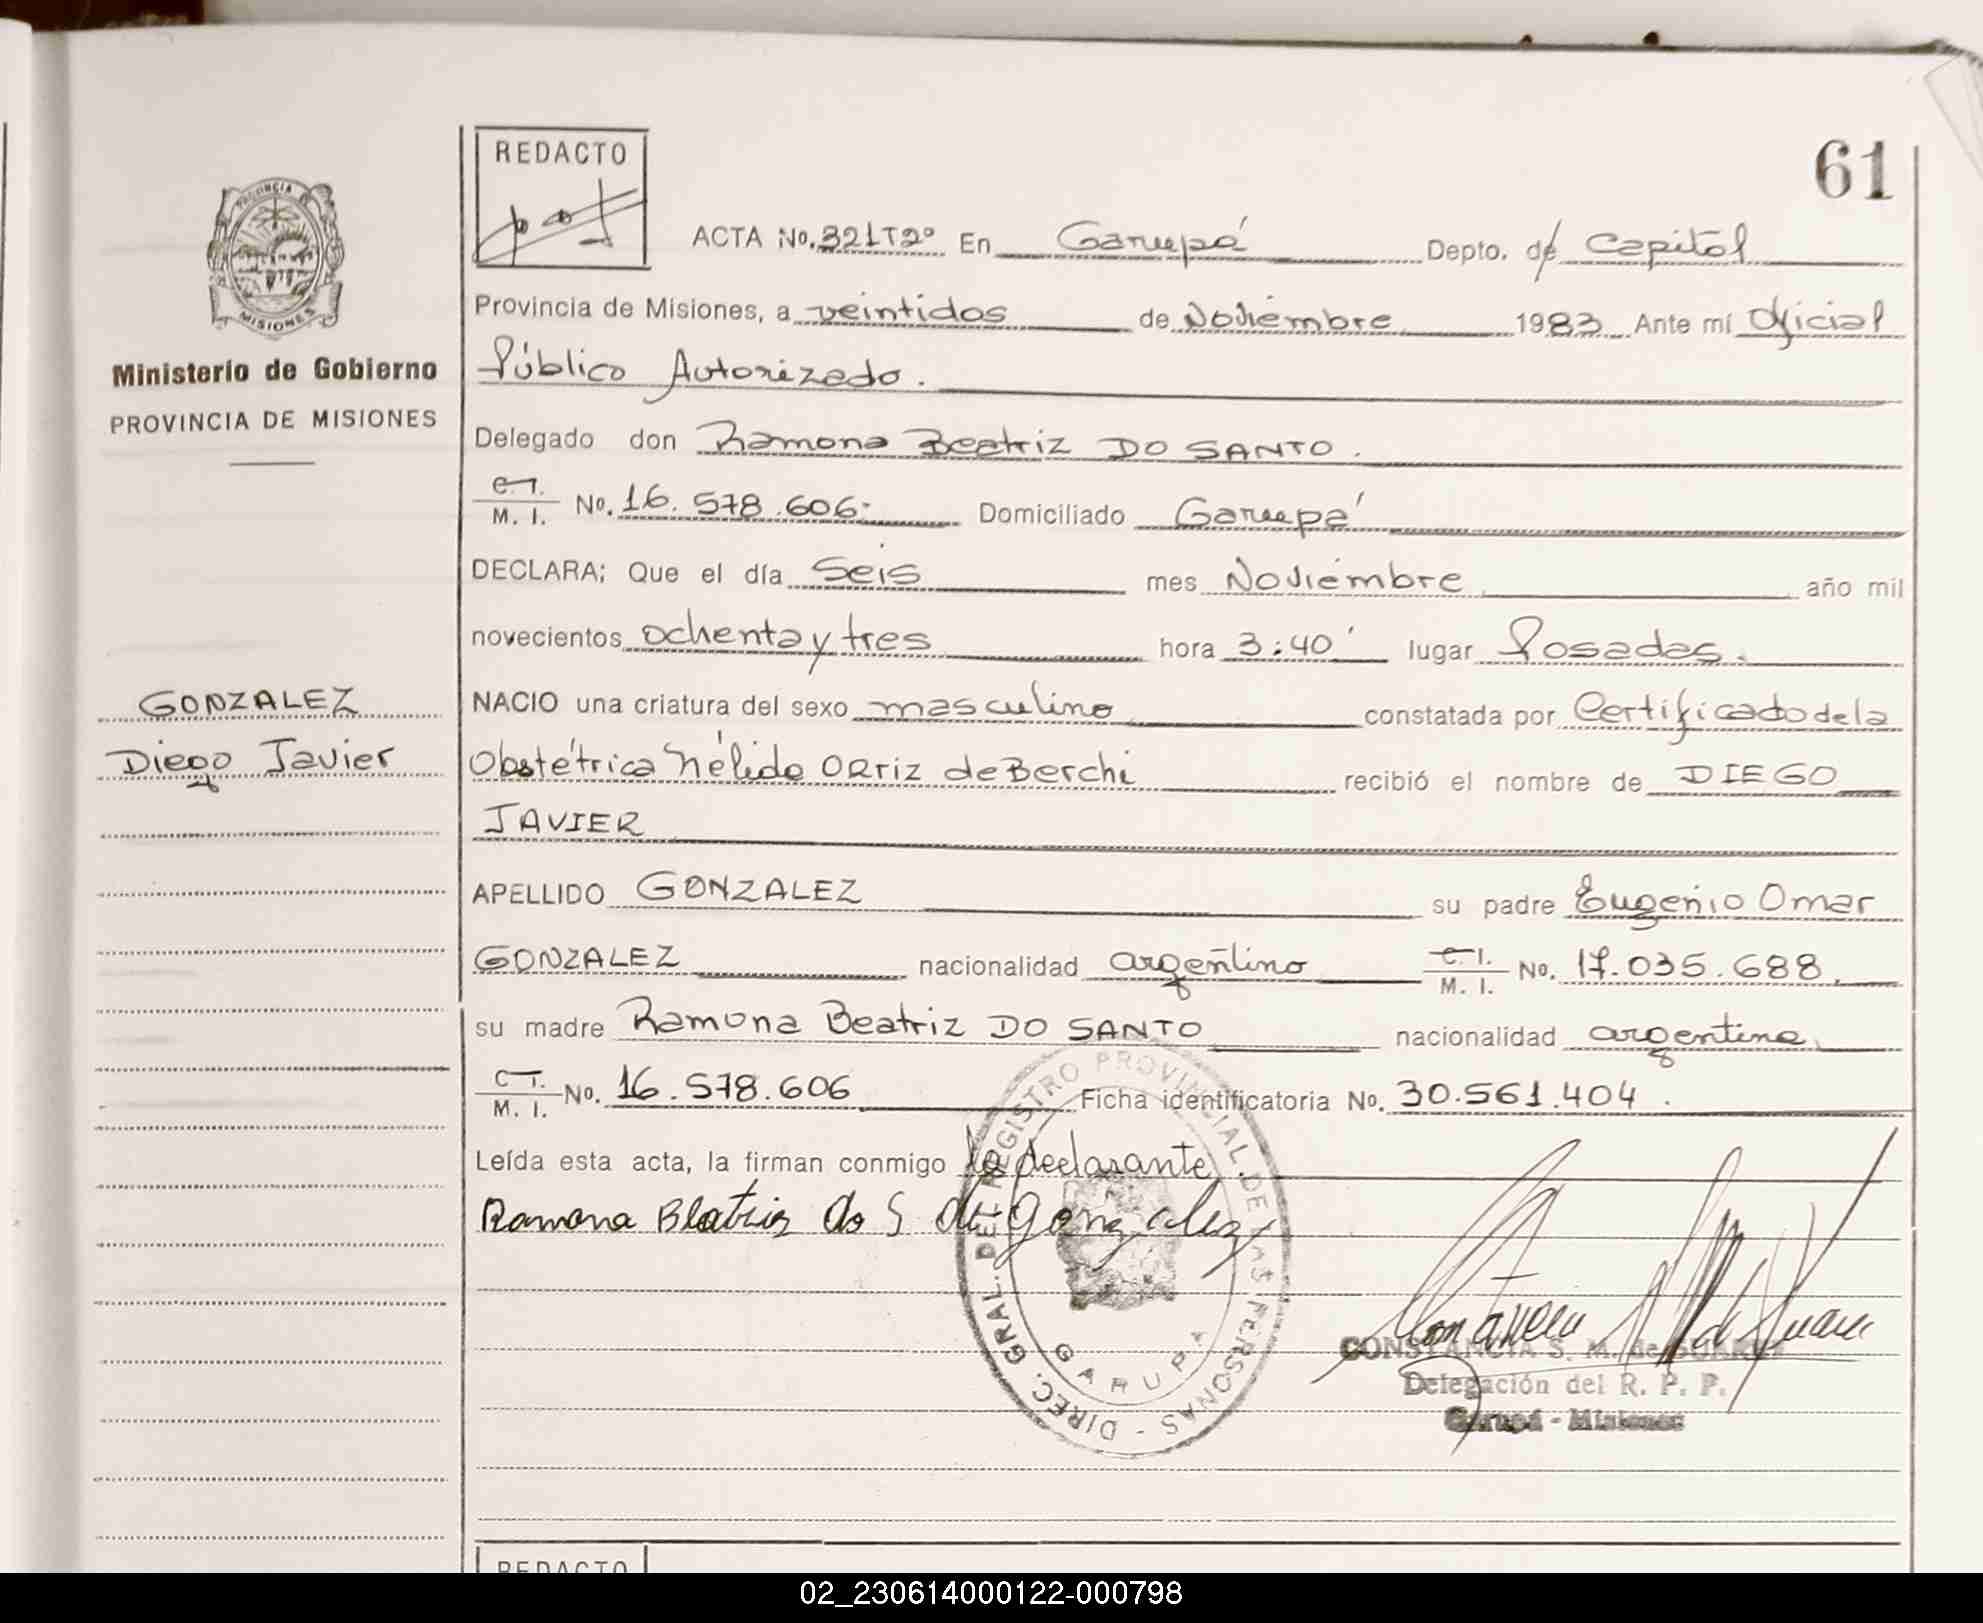 61
REDACTO
PROVINCIA
MISIONES
Ministerio de Gobierno
PROVINCIA DE MISIONES
GONZALEZ
Diego Javier
ACTA No. 321T2º En Garupá Depto. de Capital
Provincia de Misiones, a veintidos de Noviembre 1983 Ante mí Oficial
Público Autorizado.
Delegado don Ramona Beatriz DO SANTO.
C. I. M. I. No. 16.578.606 Domiciliado Garupá
DECLARA; Que el día Seis mes Noviembre año mil
novecientos ochenta y tres hora 3:40' lugar Posadas.
NACIO una criatura del sexo masculino constatada por Certificado de la
Obstétrica Nélida ORTIZ de Berchi recibió el nombre de DIEGO
JAVIER
APELLIDO GONZALEZ su padre Eugenio Omar
GONZALEZ nacionalidad argentino C. I. M. I. No. 17.035.688.
su madre Ramona Beatriz DO SANTO nacionalidad argentina.
C. I. M. I. No. 16.578.606 Ficha identificatoria No. 30.561.404.
Leída esta acta, la firman conmigo la declarante.
Ramona Beatriz do S de Gonzalez
DIREC. GRAL. DEL REGISTRO PROVINCIAL DE LAS PERSONAS -
GARUPA
CONSTANCIA S. M. de SUAREZ
Delegación del R. P. P.
Garupá - Misiones
REDACTO
02_230614000122-000798